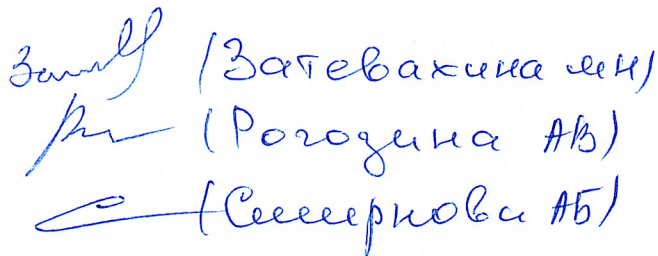 (Затевахина МН)
(Рогодина АВ)
(Смирнова АБ)